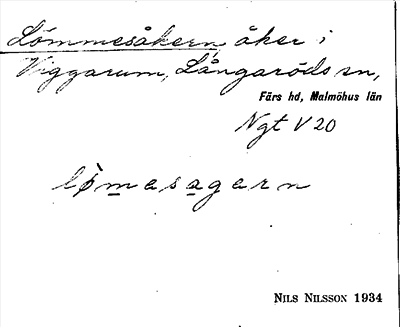 Lömmesåkern, åker i
Viggarum, Långaröds sn,
Färs hd, Malmöhus län
Ngt V 20
lø̀mesagarn
NILS NILSSON 1934